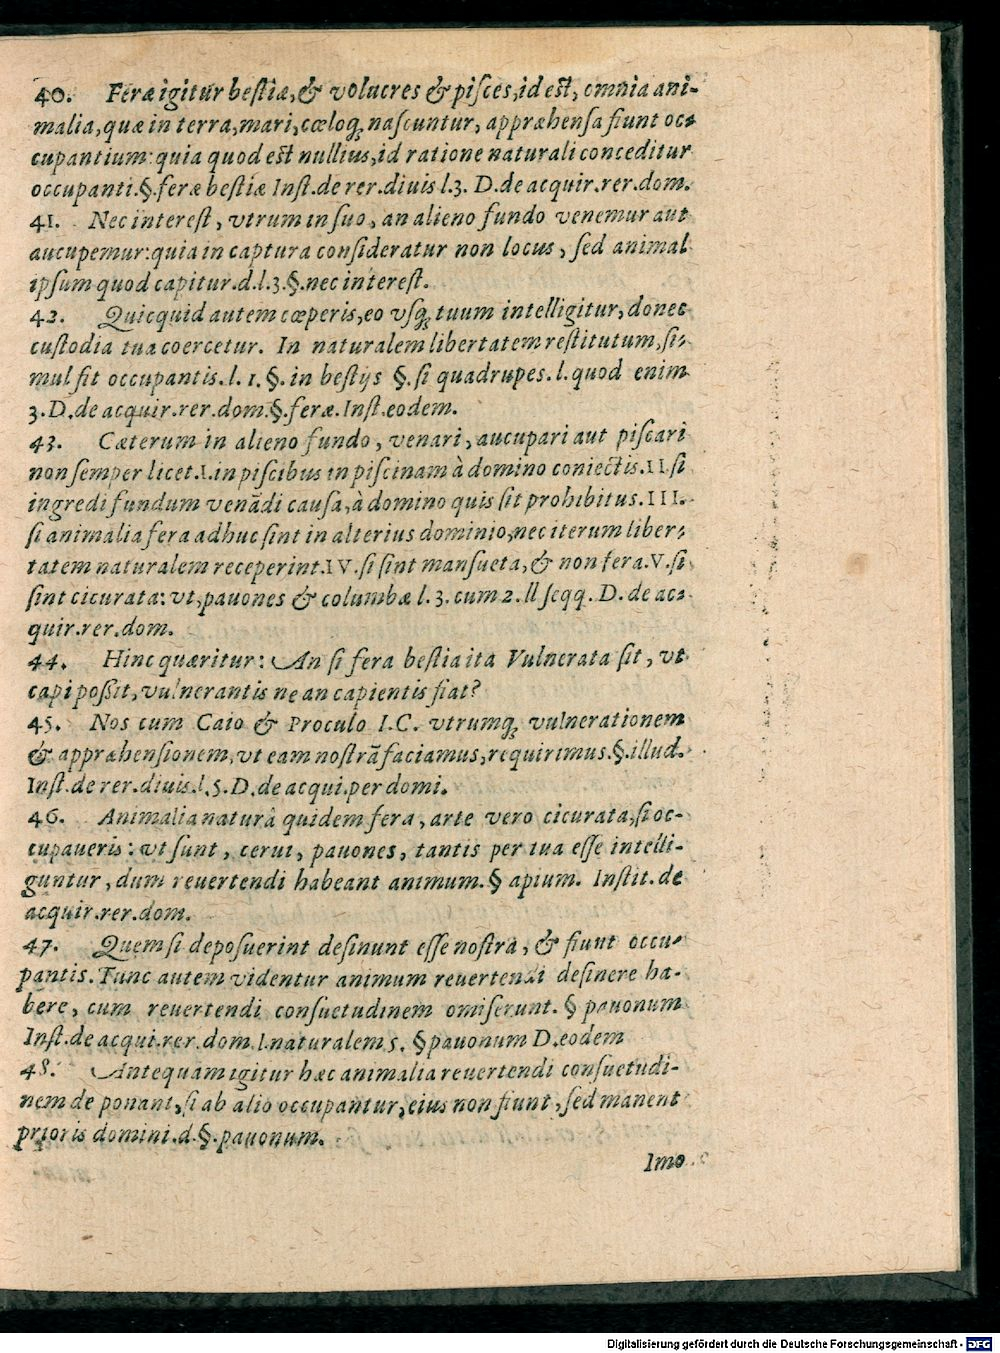 40. Feræ igitur bestiæ, & volucres & pisces, id est, omnia ani-
malia, quæ in terra, mari, cœloq; nascuntur, appræhensa fiunt oc-
cupantium: quia quod est nullius, id ratione naturali conceditur
occupanti. §. feræ bestiæ Inst. de rer. diuis l. 3. D. de acquir. rer. dom.
41. Nec interest, vtrum in suo, an alieno fundo venemur aut
aucupemur: quia in captura consideratur non locus, sed animal
ipsum quod capitur. d. l. 3. §. nec interest.
42. Quicquid autem cœperis, eo vsq; tuum intelligitur, donec
custodia tua coercetur. In naturalem libertatem restitutum, si-
mul fit occupantis. l. 1. §. in bestijs §. si quadrupes. l. quod enim
3. D. de acquir. rer. dom. §. feræ. Inst. eodem.
43. Cæterum in alieno fundo, venari, aucupari aut piscari
non semper licet. I. in piscibus in piscinam à domino coniectis. II. si
ingredi fundum venādi causa, à domino quis sit prohibitus. III.
si animalia fera adhuc sint in alterius dominio, nec iterum liber-
tatem naturalem receperint. IV. si sint mansueta, & non fera. V. si
sint cicurata: vt, pauones & columbæ l. 3. cum 2. ll seqq. D. de ac-
quir. rer. dom.
44. Hinc quæritur: An si fera bestia ita Vulnerata sit, vt
capi possit, vulnerantis ne an capientis fiat?
45. Nos cum Caio & Proculo I. C. vtrumq; vulnerationem
& appræhensionem, vt eam nostrā faciamus, requirimus. §. illud.
Inst. de rer. diuis. l. 5. D. de acqui. per domi.
46. Animalia naturâ quidem fera, arte vero cicurata, si oc-
cupaueris: vt sunt, cerui, pauones, tantis per tua esse intelli-
guntur, dum reuertendi habeant animum. § apium. Instit. de
acquir. rer. dom.
47. Quem si deposuerint desinunt esse nostra, & fiunt occu-
pantis. Tunc autem videntur animum reuertendi desinere ha-
bere, cum reuertendi consuetudinem omiserunt. § pauonum
Inst. de acqui. rer. dom. l. naturalem 5. § pauonum D. eodem
48. Antequam igitur hæc animalia reuertendi consuetudi-
nem de ponant, si ab alio occupantur, eius non fiunt, sed manent
prioris domini. d. §. pauonum.
Imo
Digitalisierung gefördert durch die Deutsche Forschungsgemeinschaft - DFG